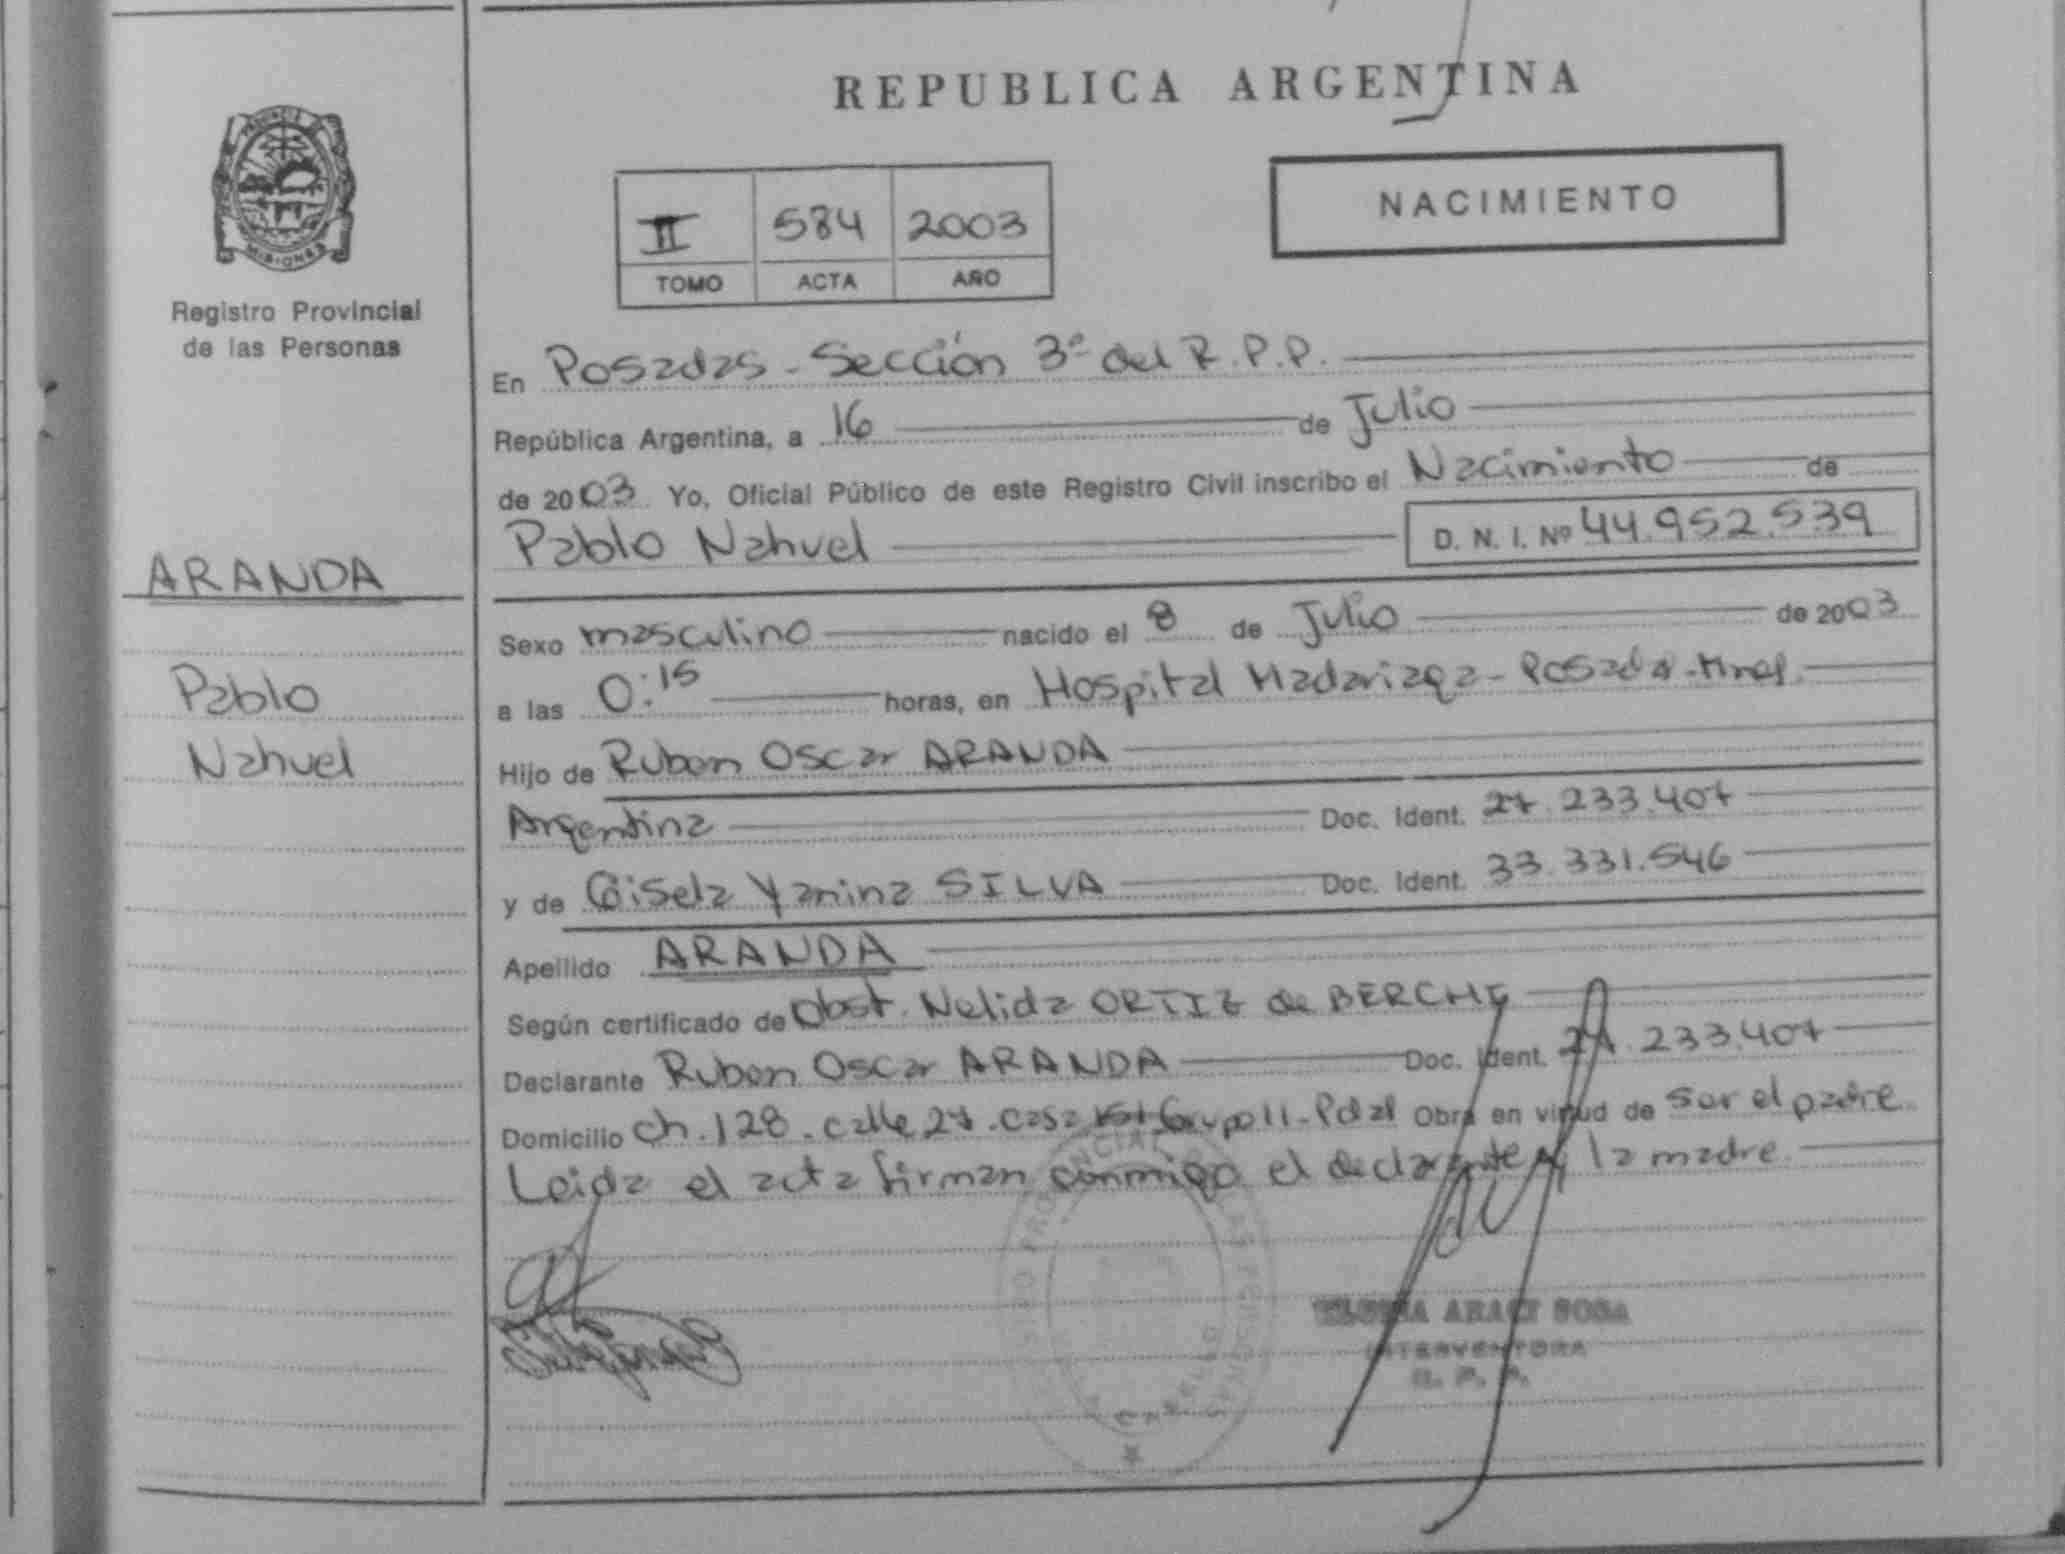 REPUBLICA ARGENTINA
PROVINCIA DE
MISIONES
Registro Provincial
de las Personas
NACIMIENTO
II 584 2003
TOMO ACTA AÑO
En Posadas - Sección 3ª del R.P.P.
República Argentina, a 16 de Julio
de 2003 Yo, Oficial Público de este Registro Civil inscribo el Nacimiento de
Pablo Nahuel D. N. I. Nº 44.952.539
ARANDA
Pablo
Nahuel
Sexo masculino nacido el 8 de Julio de 2003
a las 0:15 horas, en Hospital Madariaga - Posadas - Mnes.
Hijo de Ruben Oscar ARANDA
Argentina Doc. Ident. 27.233.407
y de Gisela Yanina SILVA Doc. Ident. 33.331.546
Apellido ARANDA
Según certificado de Obst. Nelida ORTIZ de BERCHE
Declarante Ruben Oscar ARANDA Doc. Ident. 27.233.407
Domicilio Ch. 128 - calle 27 - casa Grupo 11 - Pdas Obra en virtud de ser el padre
Leida el acta firman conmigo el declarante y la madre
ARACI SOSA
INTERVENTORA
R. P. P.